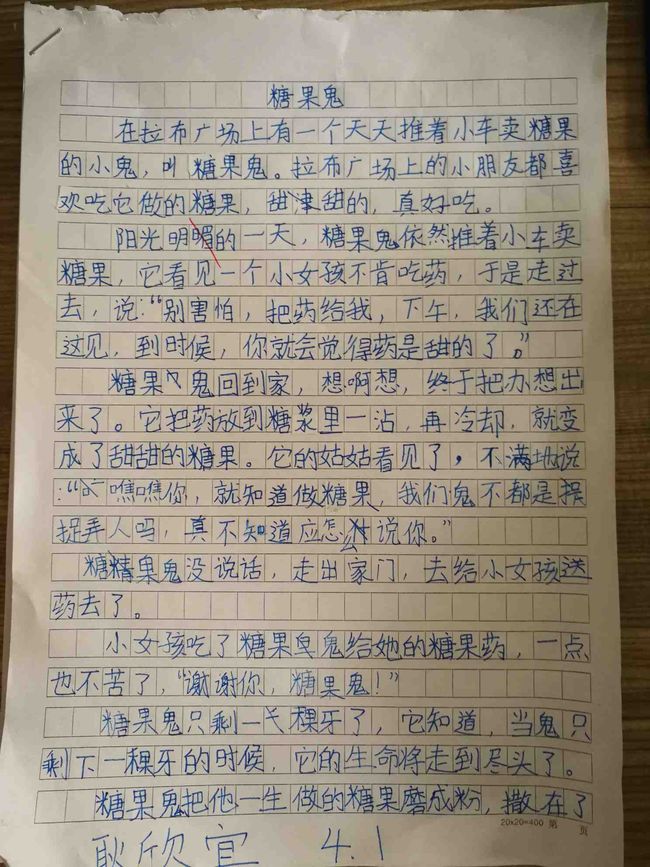 糖果鬼
在拉布广场上有一个天天推着小车卖糖果
的小鬼，叫糖果鬼。拉布广场上的小朋友都喜
欢吃它做的糖果，甜津甜的，真好吃。
阳光明媚的一天，糖果鬼依然推着小车卖
糖果，它看见一个小女孩不肯吃药，于是走过
去，说：“别害怕，把药给我，下午，我们还在
这见，到时候，你就会觉得药是甜的了。”
糖果鬼回到家，想啊想，终于把办想出
来了。它把药放到糖浆里一沾，再冷却，就变
成了甜甜的糖果。它的姑姑看见了，不满地说
：“瞧瞧你，就知道做糖果，我们鬼不都是
捉弄人吗，真不知道应怎么说你。”
糖果鬼没说话，走出家门，去给小女孩送
药去了。
小女孩吃了糖果鬼给她的糖果药，一点
也不苦了，“谢谢你，糖果鬼！”
糖果鬼只剩一棵牙了，它知道，当鬼只
剩下一棵牙的时候，它的生命将走到尽头了。
糖果鬼把他一生做的糖果磨成粉，撒在了
20×20=400 第 页
耿欣宜 4.1